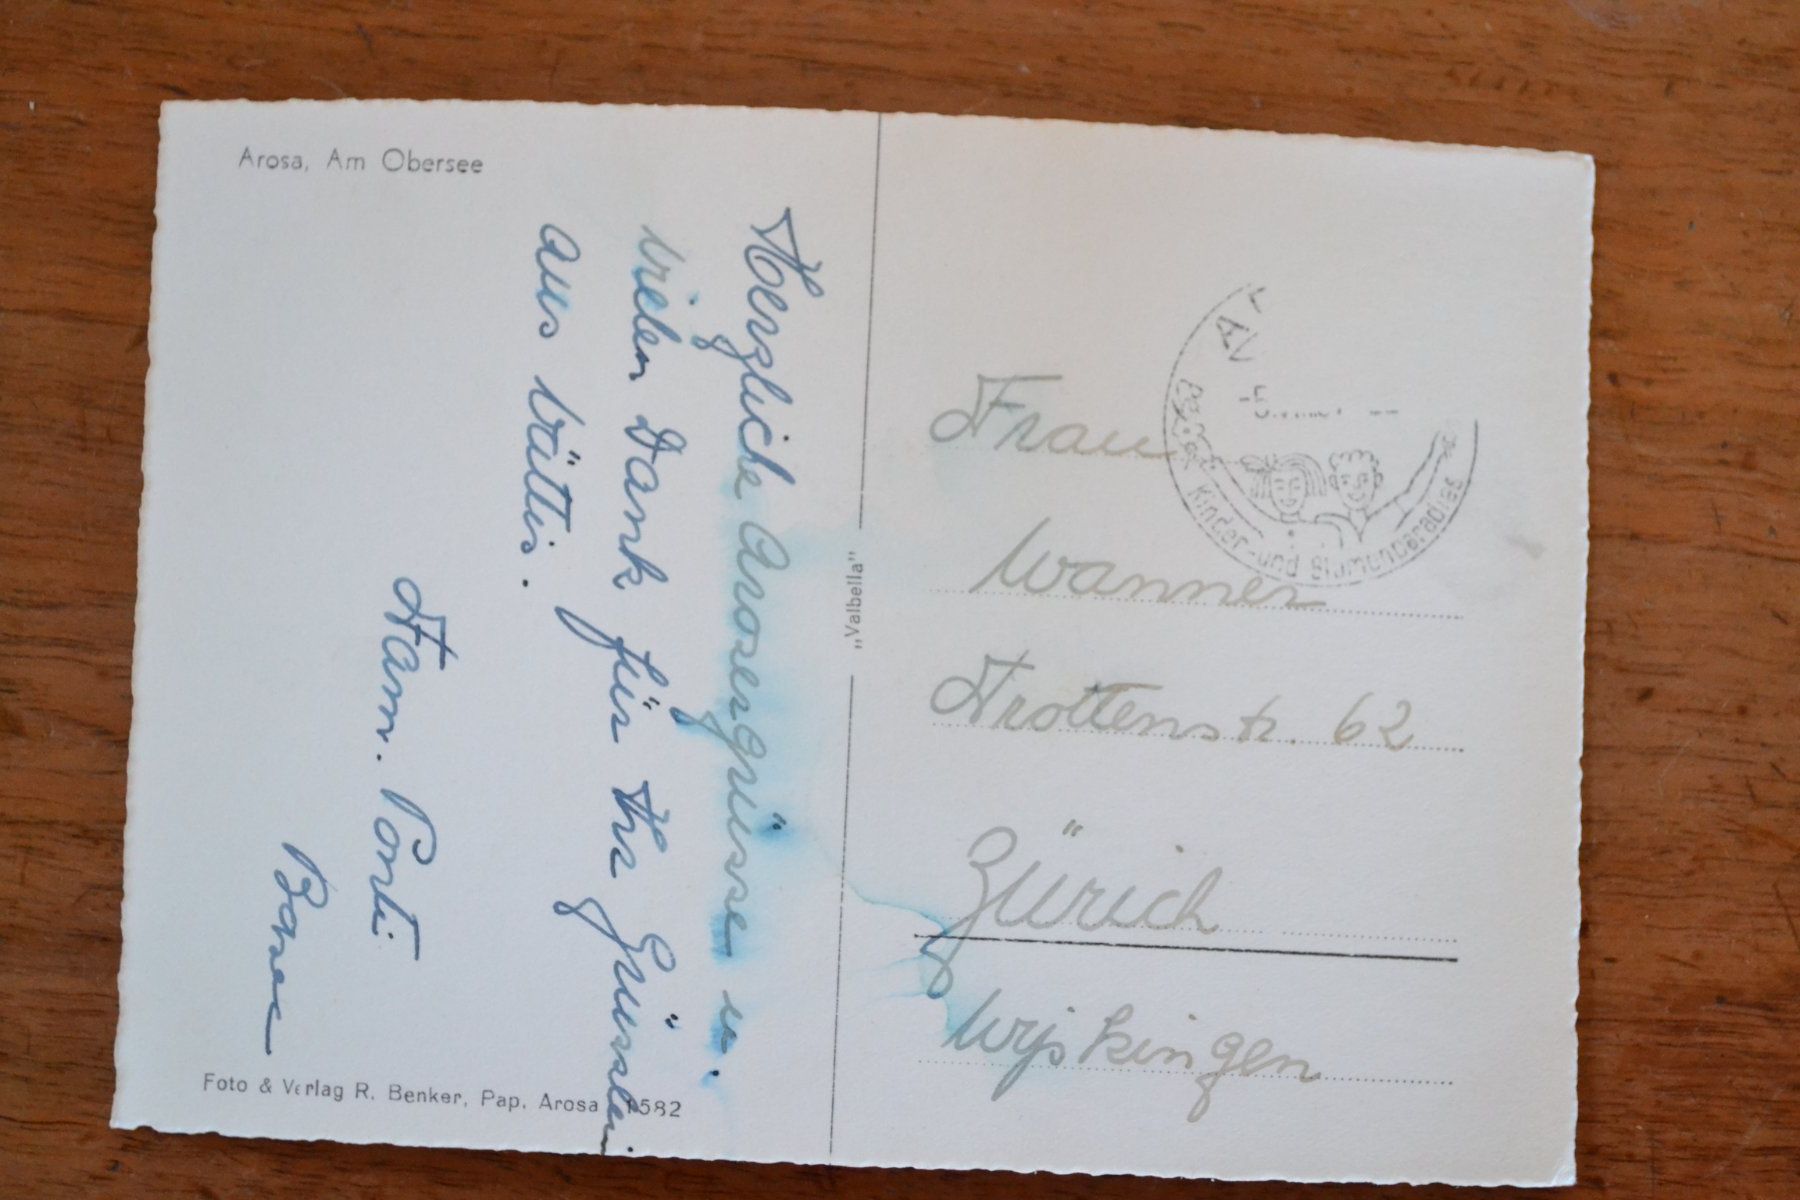 Arosa, Am Obersee
Herzliche Arosergrüsse u.
vielen Dank für Ihr Grüsslein
aus Vättis.
Fam. Ponti
Foto & Verlag R. Benker, Pap. Arosa
"Valbella"
-5.
Kinder- und Blumenparadies
Frau
Wanner
Trottenstr. 62
Zürich
Wipkingen